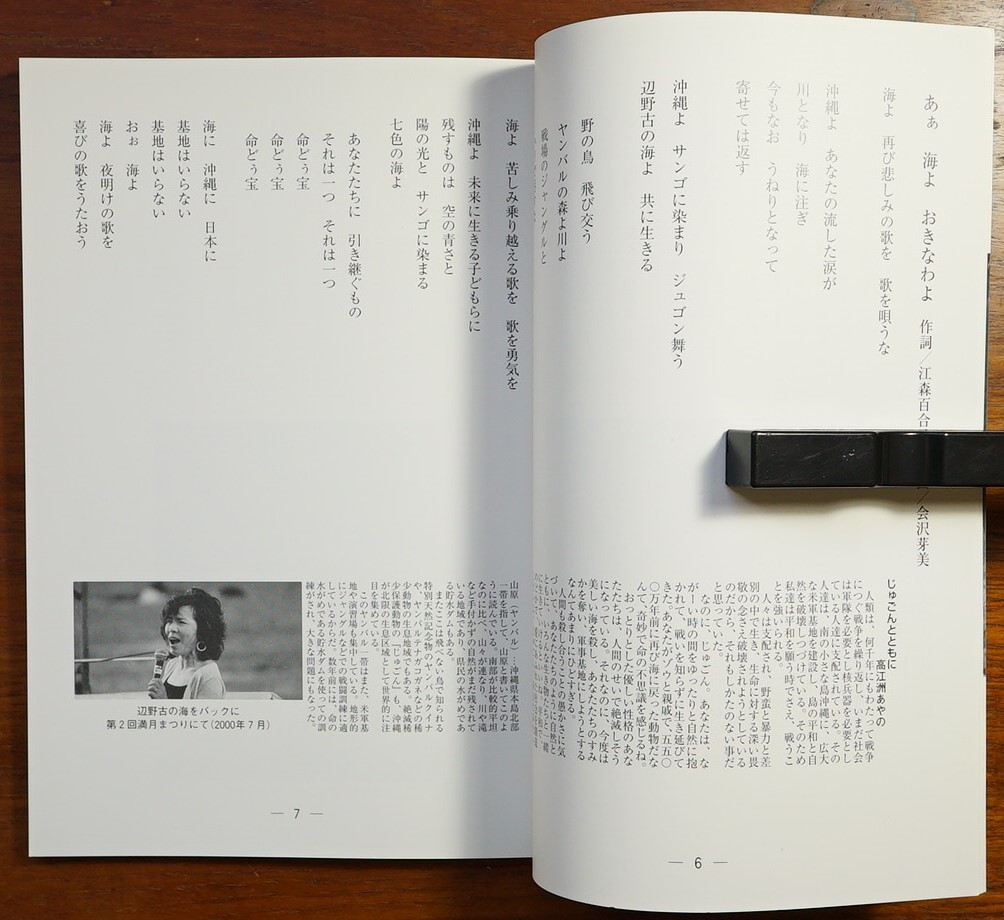 あぁ　海よ　おきなわよ　作詞／江森百合
／会沢芽美
海よ　再び悲しみの歌を　歌を唄うな
沖縄よ　あなたの流した涙が
川となり　海に注ぎ
今もなお　うねりとなって
寄せては返す
沖縄よ　サンゴに染まり　ジュゴン舞う
辺野古の海よ　共に生きる
野の鳥　飛び交う
ヤンバルの森よ川よ
戦場のジャングルを
じゅごんとともに
高江洲あやの
人類は、何千年にもわたって戦争
につぐ戦争を繰り返し、いまだ社会
は軍隊を必要とし核兵器を必要とし
ている人達に支配されている。その
人達は、南の小さな島沖縄に、広大
な米軍基地を建設し、島の平和と自
然を破壊しつづけている。そのため
私達は平和を願う時でさえ、戦うこ
とを強いられる。
人々は支配され、野蛮と暴力と差
別の中で生き、生命に対する深い畏
敬の念さえ破壊されようとしている
のだから、それもしかたのない事だ
と思っていた。
なのに、じゅごん。あなたは、な
がーい時の間をゆったりと自然に抱
かれて、戦いを知らずに生き延びて
きた。あなたがゾウと親戚で、五五〇
〇万年前に再び海に戻った動物だな
んて、奇妙で命の不思議を感じるね。
おっとりとした優しい性格のあな
たたちは、人間のために絶滅しそう
になっている。それなのに、今度は
美しい海を殺し、あなたたちのすみ
かを奪い、軍事基地にしようとする
なんてあまりにひどすぎる。
人間も殺し合うことの愚かさに気
づいて、あなたたちのように自然と
— 6 —
海よ　苦しみ乗り越える歌を　歌を勇気を
沖縄よ　未来に生きる子どもらに
残すものは　空の青さと
陽の光と　サンゴに染まる
七色の海よ
あなたたちに　引き継ぐもの
それは一つ　それは一つ
命どぅ宝
命どぅ宝
命どぅ宝
海に　沖縄に　日本に
基地はいらない
基地はいらない
おぉ　海よ
海よ　夜明けの歌を
喜びの歌をうたおう
山原（ヤンバル）…沖縄県本島北部
一帯を指して、山原と書いてこのよ
うに読んでいる。南部が比較的平坦
なのに比べ、山々が連なり、川や滝
など手付かずの自然がまだ残されて
いる地域であり、県民の水がめであ
る貯水ダムもある。
またここは飛べない鳥で知られる
特別天然記念物のヤンバルクイナ
や、ヤンバルテナガコガネなどの稀
少動物の生息地域でもある。絶滅稀
少保護動物の『じゅごん』も、沖縄
が北限の生息区域として世界的に注
目を集めている。
このヤンバル一帯はまた、米軍基
地や演習場も集中している。地形的
にジャングルなどでの戦闘訓練に適
しているからだ。数年前には、命の
水がめである貯水ダムを使っての訓
練がされ、大きな問題にもなった。
辺野古の海をバックに
第２回満月まつりにて（2000年７月）
— 7 —